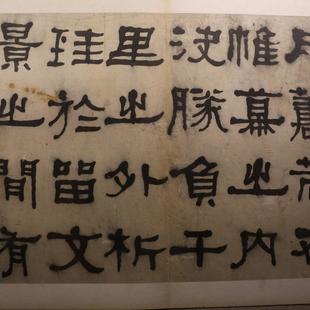 帷幕之内
決勝負千
里之外析
珪於留文
景之間有